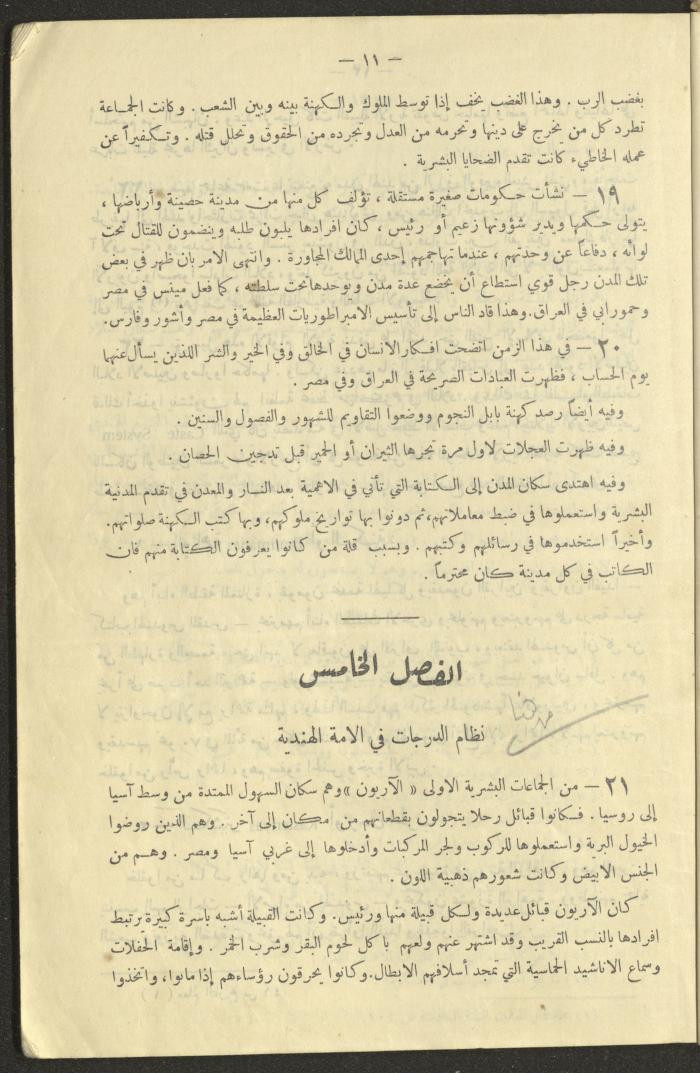 — ١١ —
بغضب الرب . وهذا الغضب يخف إذا توسط الملوك والكهنة بينه وبين الشعب . وكانت الجماعة
تطرد كل من يخرج على دينها وتحرمه من العدل وتجرده من الحقوق وتحلل قتله . وتكفيراً عن
عمله الخاطيء كانت تقدم الضحايا البشرية .
١٩ — نشأت حكومات صغيرة مستقلة ، تؤلف كل منها من مدينة حصينة وأرباضها ،
يتولى حكمها ويدير شؤونها زعيم أو رئيس ، كان افرادها يلبون طلبه وينضمون للقتال تحت
لوائه ، دفاعاً عن وحدتهم ، عندما تهاجمهم إحدى الممالك المجاورة . وانتهى الامر بان ظهر في بعض
تلك المدن رجل قوي استطاع أن يخضع عدة مدن ويوحدها تحت سلطته ، كما فعل مينس في مصر
وحمورابي في العراق. وهذا قاد الناس إلى تأسيس الامبراطوريات العظيمة في مصر وأشور وفارس.
٢٠ — في هذا الزمن اتضحت افكار الانسان في الخالق وفي الخير والشر اللذين يسأل عنهما
يوم الحساب ، فظهرت العبادات الصريحة في العراق وفي مصر .
وفيه أيضاً رصد كهنة بابل النجوم ووضعوا التقاويم للشهور والفصول والسنين .
وفيه ظهرت العجلات لاول مرة تجرها الثيران أو الحمير قبل تدجين الحصان .
وفيه اهتدى سكان المدن إلى الكتابة التي تأتي في الاهمية بعد النسار والمعدن في تقدم المدنية
البشرية واستعملوها في ضبط معاملاتهم، ثم دونوا بها تواريخ ملوكهم، وبها كتب الكهنة صلواتهم.
وأخيراً استخدموها في رسائلهم وكتبهم . وبسبب قلة من كانوا يعرفون الكتابة منهم فان
الكاتب في كل مدينة كان محترماً .
الفصل الخامس
نظام الدرجات في الامة الهندية
٢١ — من الجماعات البشرية الاولى « الآريون » وهم سكان السهول الممتدة من وسط آسيا
إلى روسيا . فكانوا قبائل رحلا يتجولون بقطعانهم من مكان إلى آخر . وهم الذين روضوا
الخيول البرية واستعملوها للركوب ولجر المركبات وأدخلوها إلى غربي آسيا ومصر . وهم من
الجنس الابيض وكانت شعورهم ذهبية اللون .
كان الآريون قبائل عديدة ولكل قبيلة منها رئيس. وكانت القبيلة أشبه باسرة كبيرة يرتبط
افرادها بالنسب القريب وقد اشتهر عنهم ولعهم باكل لحوم البقر وشرب الخمر . وإقامة الحفلات
وسماع الاناشيد الحماسية التي تمجد أسلافهم الابطال. وكانوا يحرقون رؤساءهم إذا ماتوا، واتخذوا